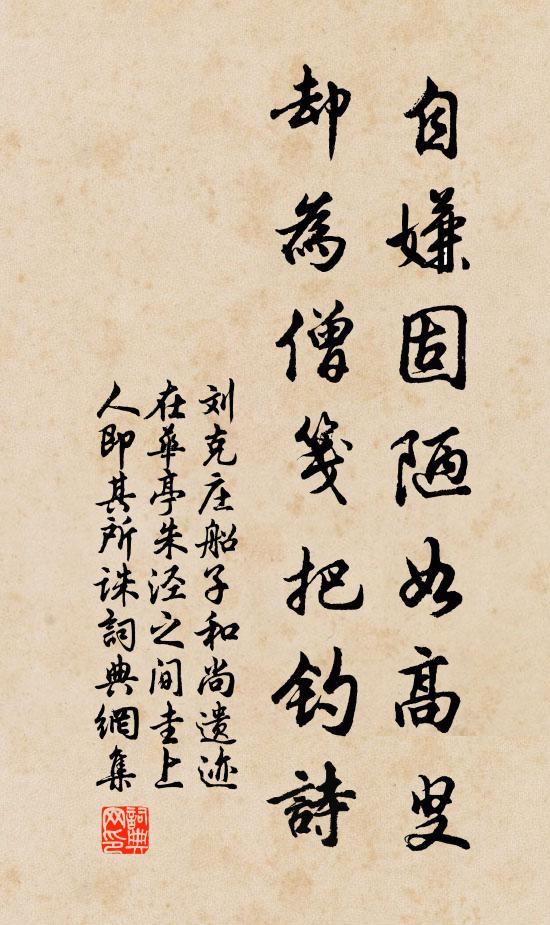 自嫌固陋如高叟
却為僧箋把钓詩
刘克庄船子和尚遗迹
在華亭朱泾之间圭上
人即其所诛詞典網集
詞典网印